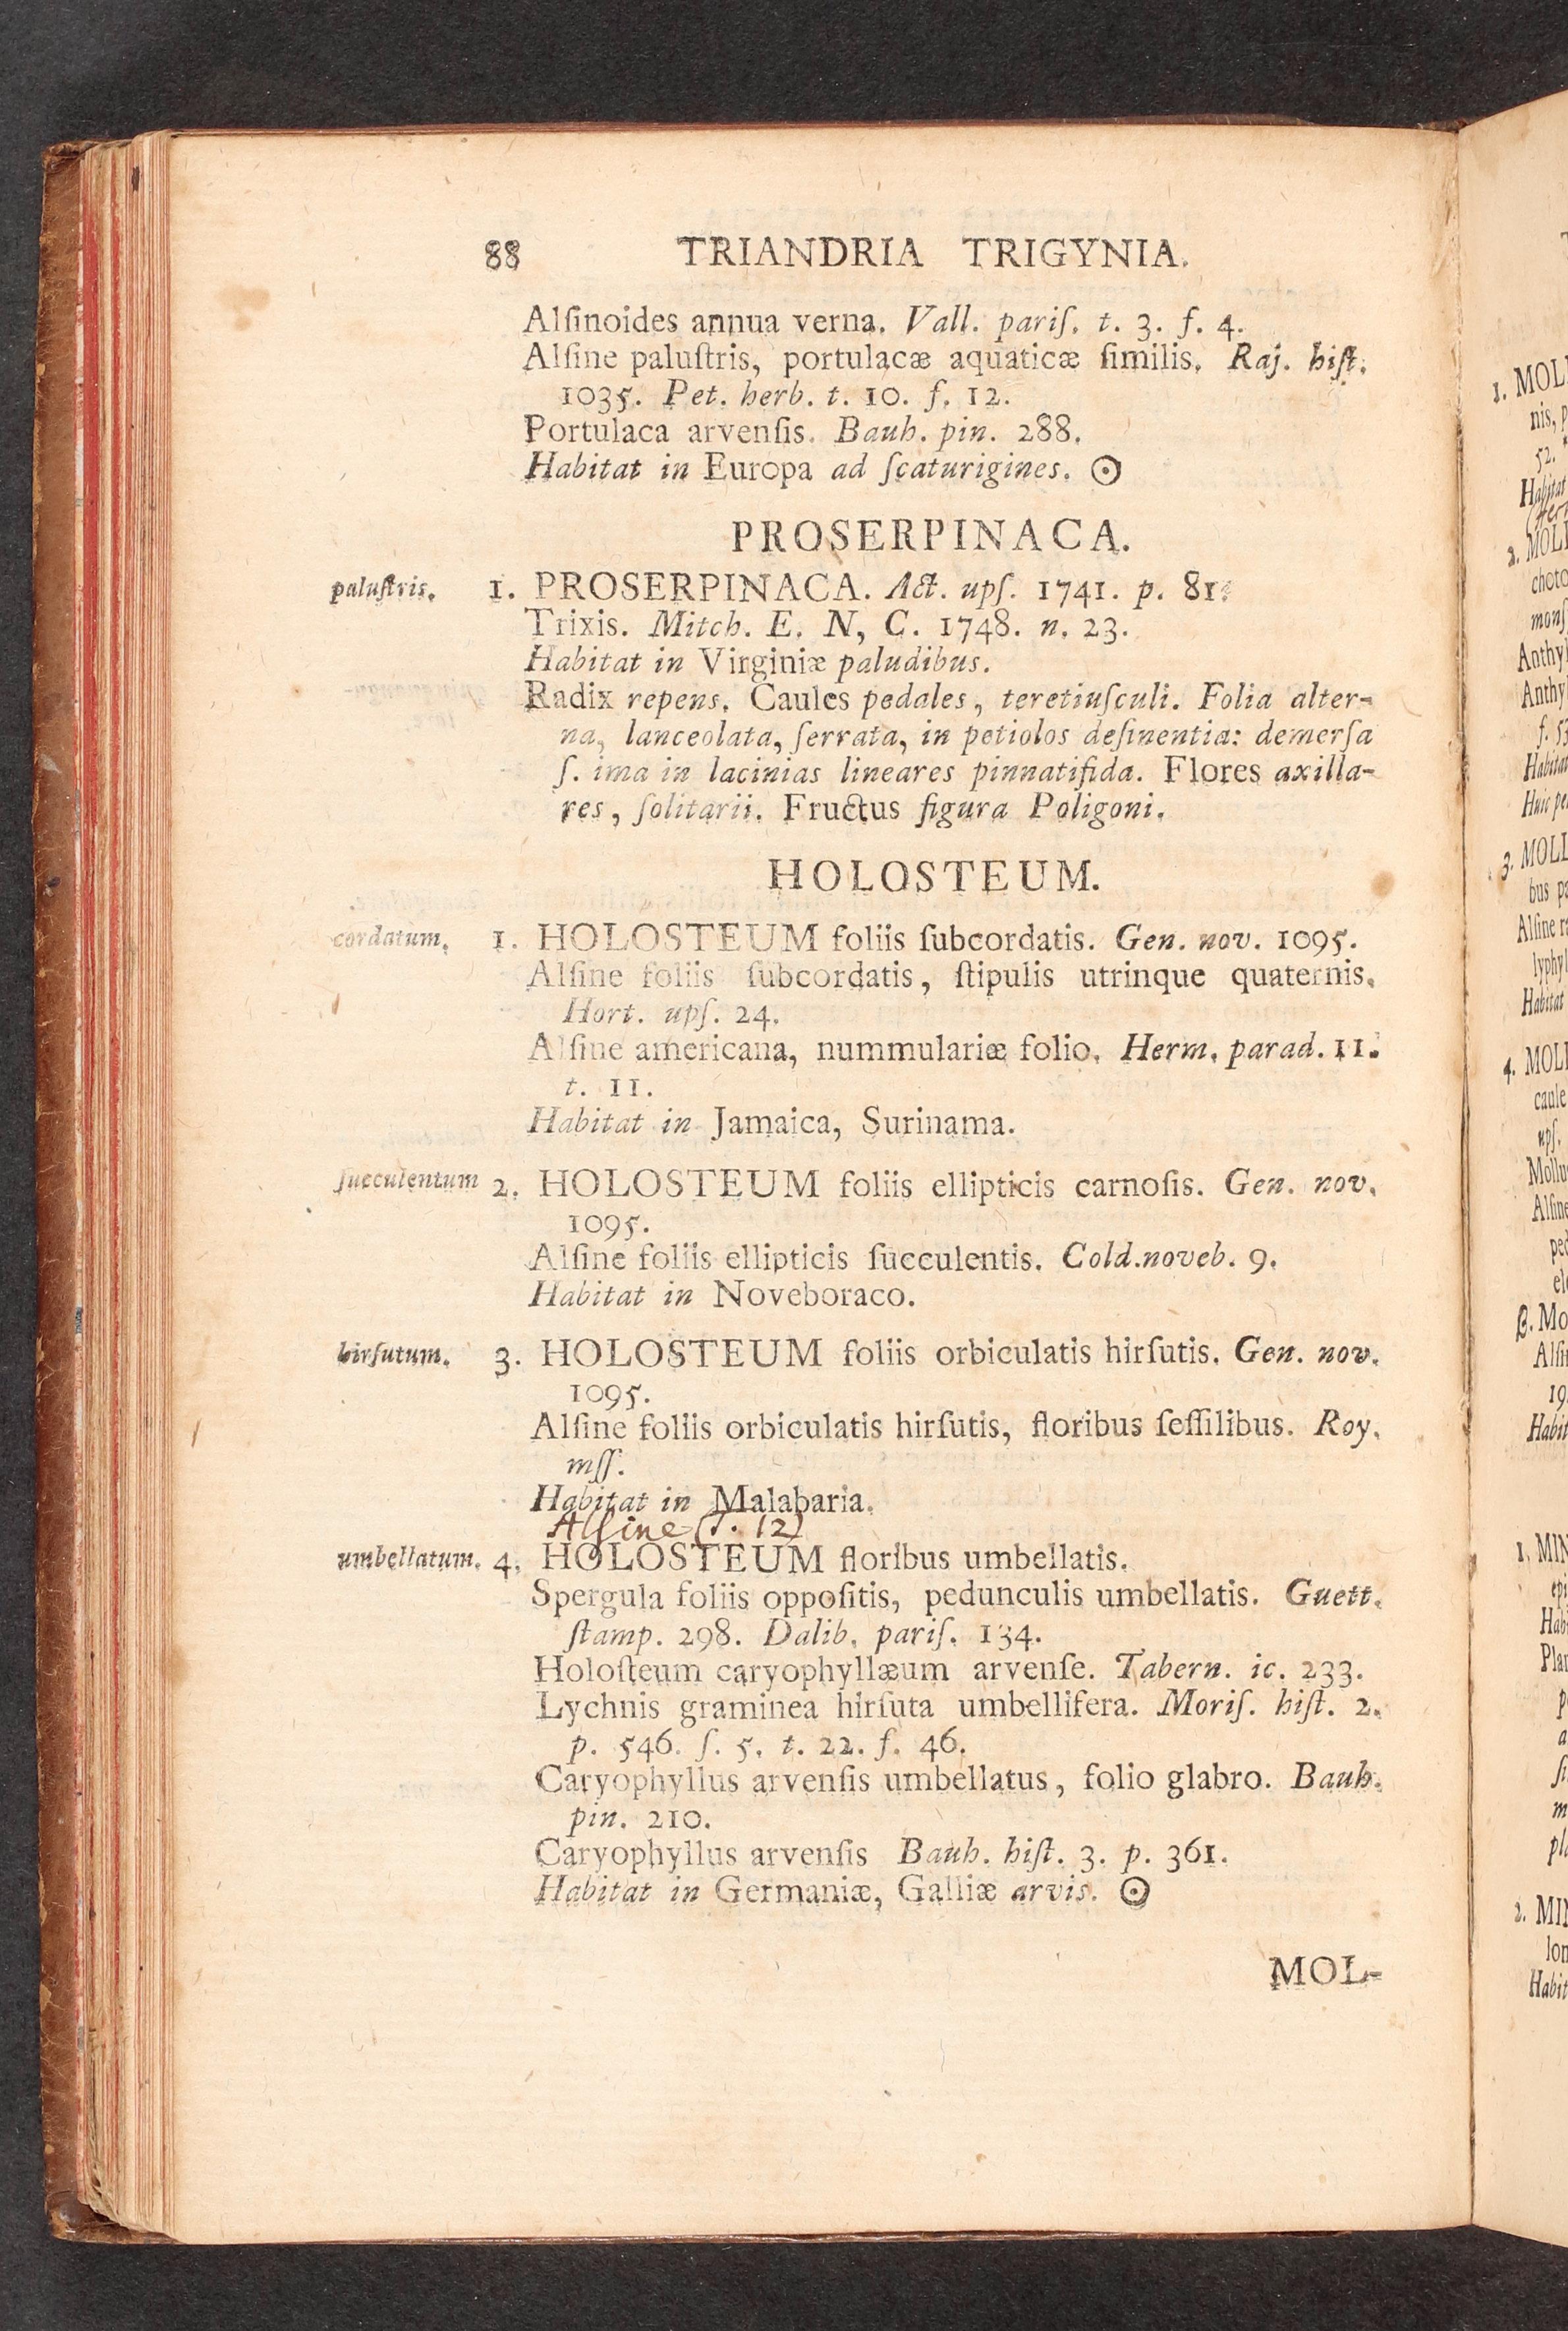 88 TRIANDRIA TRIGYNIA.
Alſinoides annua verna. Vall. pariſ. t. 3. f. 4.
Alſine paluſtris, portulacæ aquaticæ ſimilis. Raj. hiſt.
1035. Pet. herb. t. 10. f. 12.
Portulaca arvenſis. Bauh. pin. 288.
Habitat in Europa ad ſcaturigines. ☉
PROSERPINACA.
paluſtris. 1. PROSERPINACA. Act. upſ. 1741. p. 81.
Trixis. Mitch. E. N, C. 1748. n. 23.
Habitat in Virginiæ paludibus.
Radix repens. Caules pedales, teretiuſculi. Folia alter-
na, lanceolata, ſerrata, in petiolos deſinentia: demerſa
ſ. ima in lacinias lineares pinnatifida. Flores axilla-
res, ſolitarii. Fructus figura Poligoni.
HOLOSTEUM.
cordatum. 1. HOLOSTEUM foliis ſubcordatis. Gen. nov. 1095.
Alſine foliis ſubcordatis, ſtipulis utrinque quaternis.
Hort. upſ. 24.
Alſine americana, nummulariæ folio. Herm. parad. 11.
t. 11.
Habitat in Jamaica, Surinama.
ſucculentum 2. HOLOSTEUM foliis ellipticis carnoſis. Gen. nov.
1095.
Alſine foliis ellipticis ſucculentis. Cold.noveb. 9.
Habitat in Noveboraco.
hirſutum. 3. HOLOSTEUM foliis orbiculatis hirſutis. Gen. nov.
1095.
Alſine foliis orbiculatis hirſutis, floribus ſeſſilibus. Roy.
mſſ.
Habitat in Malabaria.
Alſine (T. 12)
umbellatum. 4. HOLOSTEUM floribus umbellatis.
Spergula foliis oppoſitis, pedunculis umbellatis. Guett.
ſtamp. 298. Dalib. pariſ. 134.
Holoſteum caryophyllæum arvenſe. Tabern. ic. 233.
Lychnis graminea hirſuta umbellifera. Moriſ. hiſt. 2.
p. 546. ſ. 5. t. 22. f. 46.
Caryophyllus arvenſis umbellatus, folio glabro. Bauh.
pin. 210.
Caryophyllus arvenſis Bauh. hiſt. 3. p. 361.
Habitat in Germaniæ, Galliæ arvis. ☉
MOL-